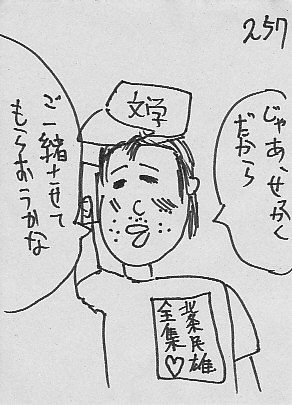 257
じゃあ、せっかく
だから
文学
ご一緒させて
もらおうかな
北条民雄
全集♡